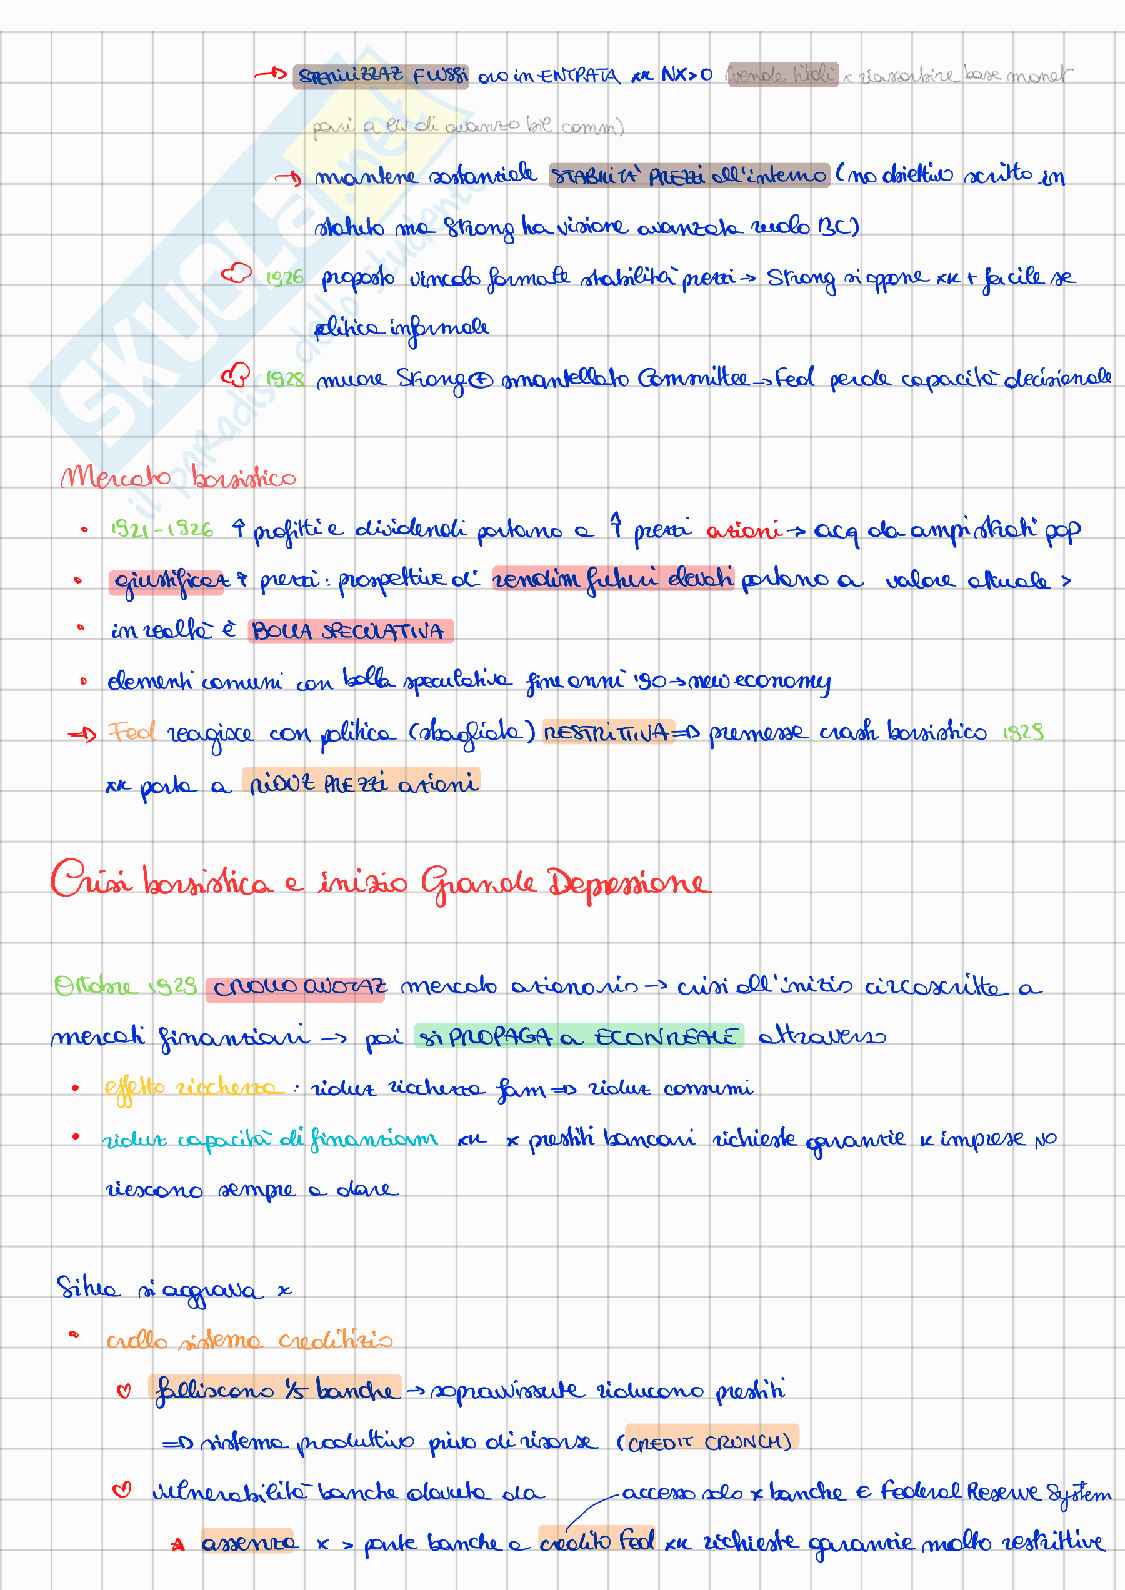 → STERILIZZAZ FLUSSI oro in ENTRATA xk NX>0 (vende titoli x riassorbire base monet
pari a liv di avanzo bil comm)
→ mantiene sostanziale STABILITÀ PREZZI all'interno (no obiettivo scritto in
statuto ma Strong ha visione avanzata ruolo BC)
1926 proposto vincolo formale stabilità prezzi → Strong si oppone xk + facile se
politica informale
1928 muore Strong ⊕ smantellato Committee → Fed perde capacità decisionale
Mercato borsistico
• 1921-1926 ↑ profitti e dividendi portano a ↑ prezzi azioni → acq da ampi strati pop
• giustificaz ↑ prezzi: prospettive di rendim futuri elevati portano a valore attuale >
• in realtà è BOLLA SPECULATIVA
• elementi comuni con bolla speculativa fine anni '90 → new economy
⇒ Fed reagisce con politica (sbagliata) RESTRITTIVA ⇒ premesse crash borsistico 1929
xk porta a RIDUZ PREZZI azioni
Crisi borsistica e inizio Grande Depressione
Ottobre 1929 CROLLO QUOTAZ mercato azionario → crisi all'inizio circoscritta a
mercati finanziari → poi si PROPAGA a ECON REALE attraverso
• effetto ricchezza: riduz ricchezza fam ⇒ riduz consumi
• riduz capacità di finanziam xk x prestiti bancari richieste garanzie k imprese NO
riescono sempre a dare
Situa si aggrava x
• crollo sistema creditizio
♡ falliscono 1/5 banche → sopravvissute riducono prestiti
⇒ sistema produttivo privo di risorse (CREDIT CRUNCH)
♡ vulnerabilità banche dovuta da
accesso solo x banche ∈ Federal Reserve System
assenza x > parte banche a credito Fed xk richieste garanzie molto restrittive
SKUOLA.net
il paradiso dello studente